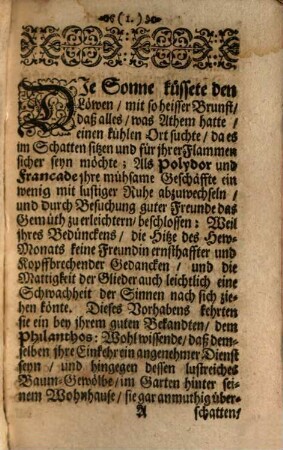 (1.)
DIe Sonne küssete den
Löwen / mit so heisser Brunst /
daß alles / was Athem hatte /
einen kühlen Ort suchte / da es
im Schatten sitzen und für jhrer Flammen
sicher seyn möchte; Als Polydor und
Francade jhre mühsame Geschäffte ein
wenig mit lustiger Ruhe abzuwechseln /
und durch Besuchung guter Freunde das
Gemüth zu erleichtern / beschlossen: Weil
jhres Bedünckens / die Hitze des Hew-
Monats keine Freundin ernsthaffter und
Kopffbrechender Gedancken / und die
Mattigkeit der Glieder auch leichtlich eine
Schwachheit der Sinnen nach sich zie-
hen könte. Dieses Vorhabens kehrten
sie ein bey jhrem guten Bekandten / dem
Philanthos: Wohl wissende / daß dem-
selben jhre Einkehr ein angenehmer Dienst
seyn / und hingegen dessen lustreiches
Baum-Gewölbe / im Garten hinter sei-
nem Wohnhause / sie gar anmuthig über-
A schatten /